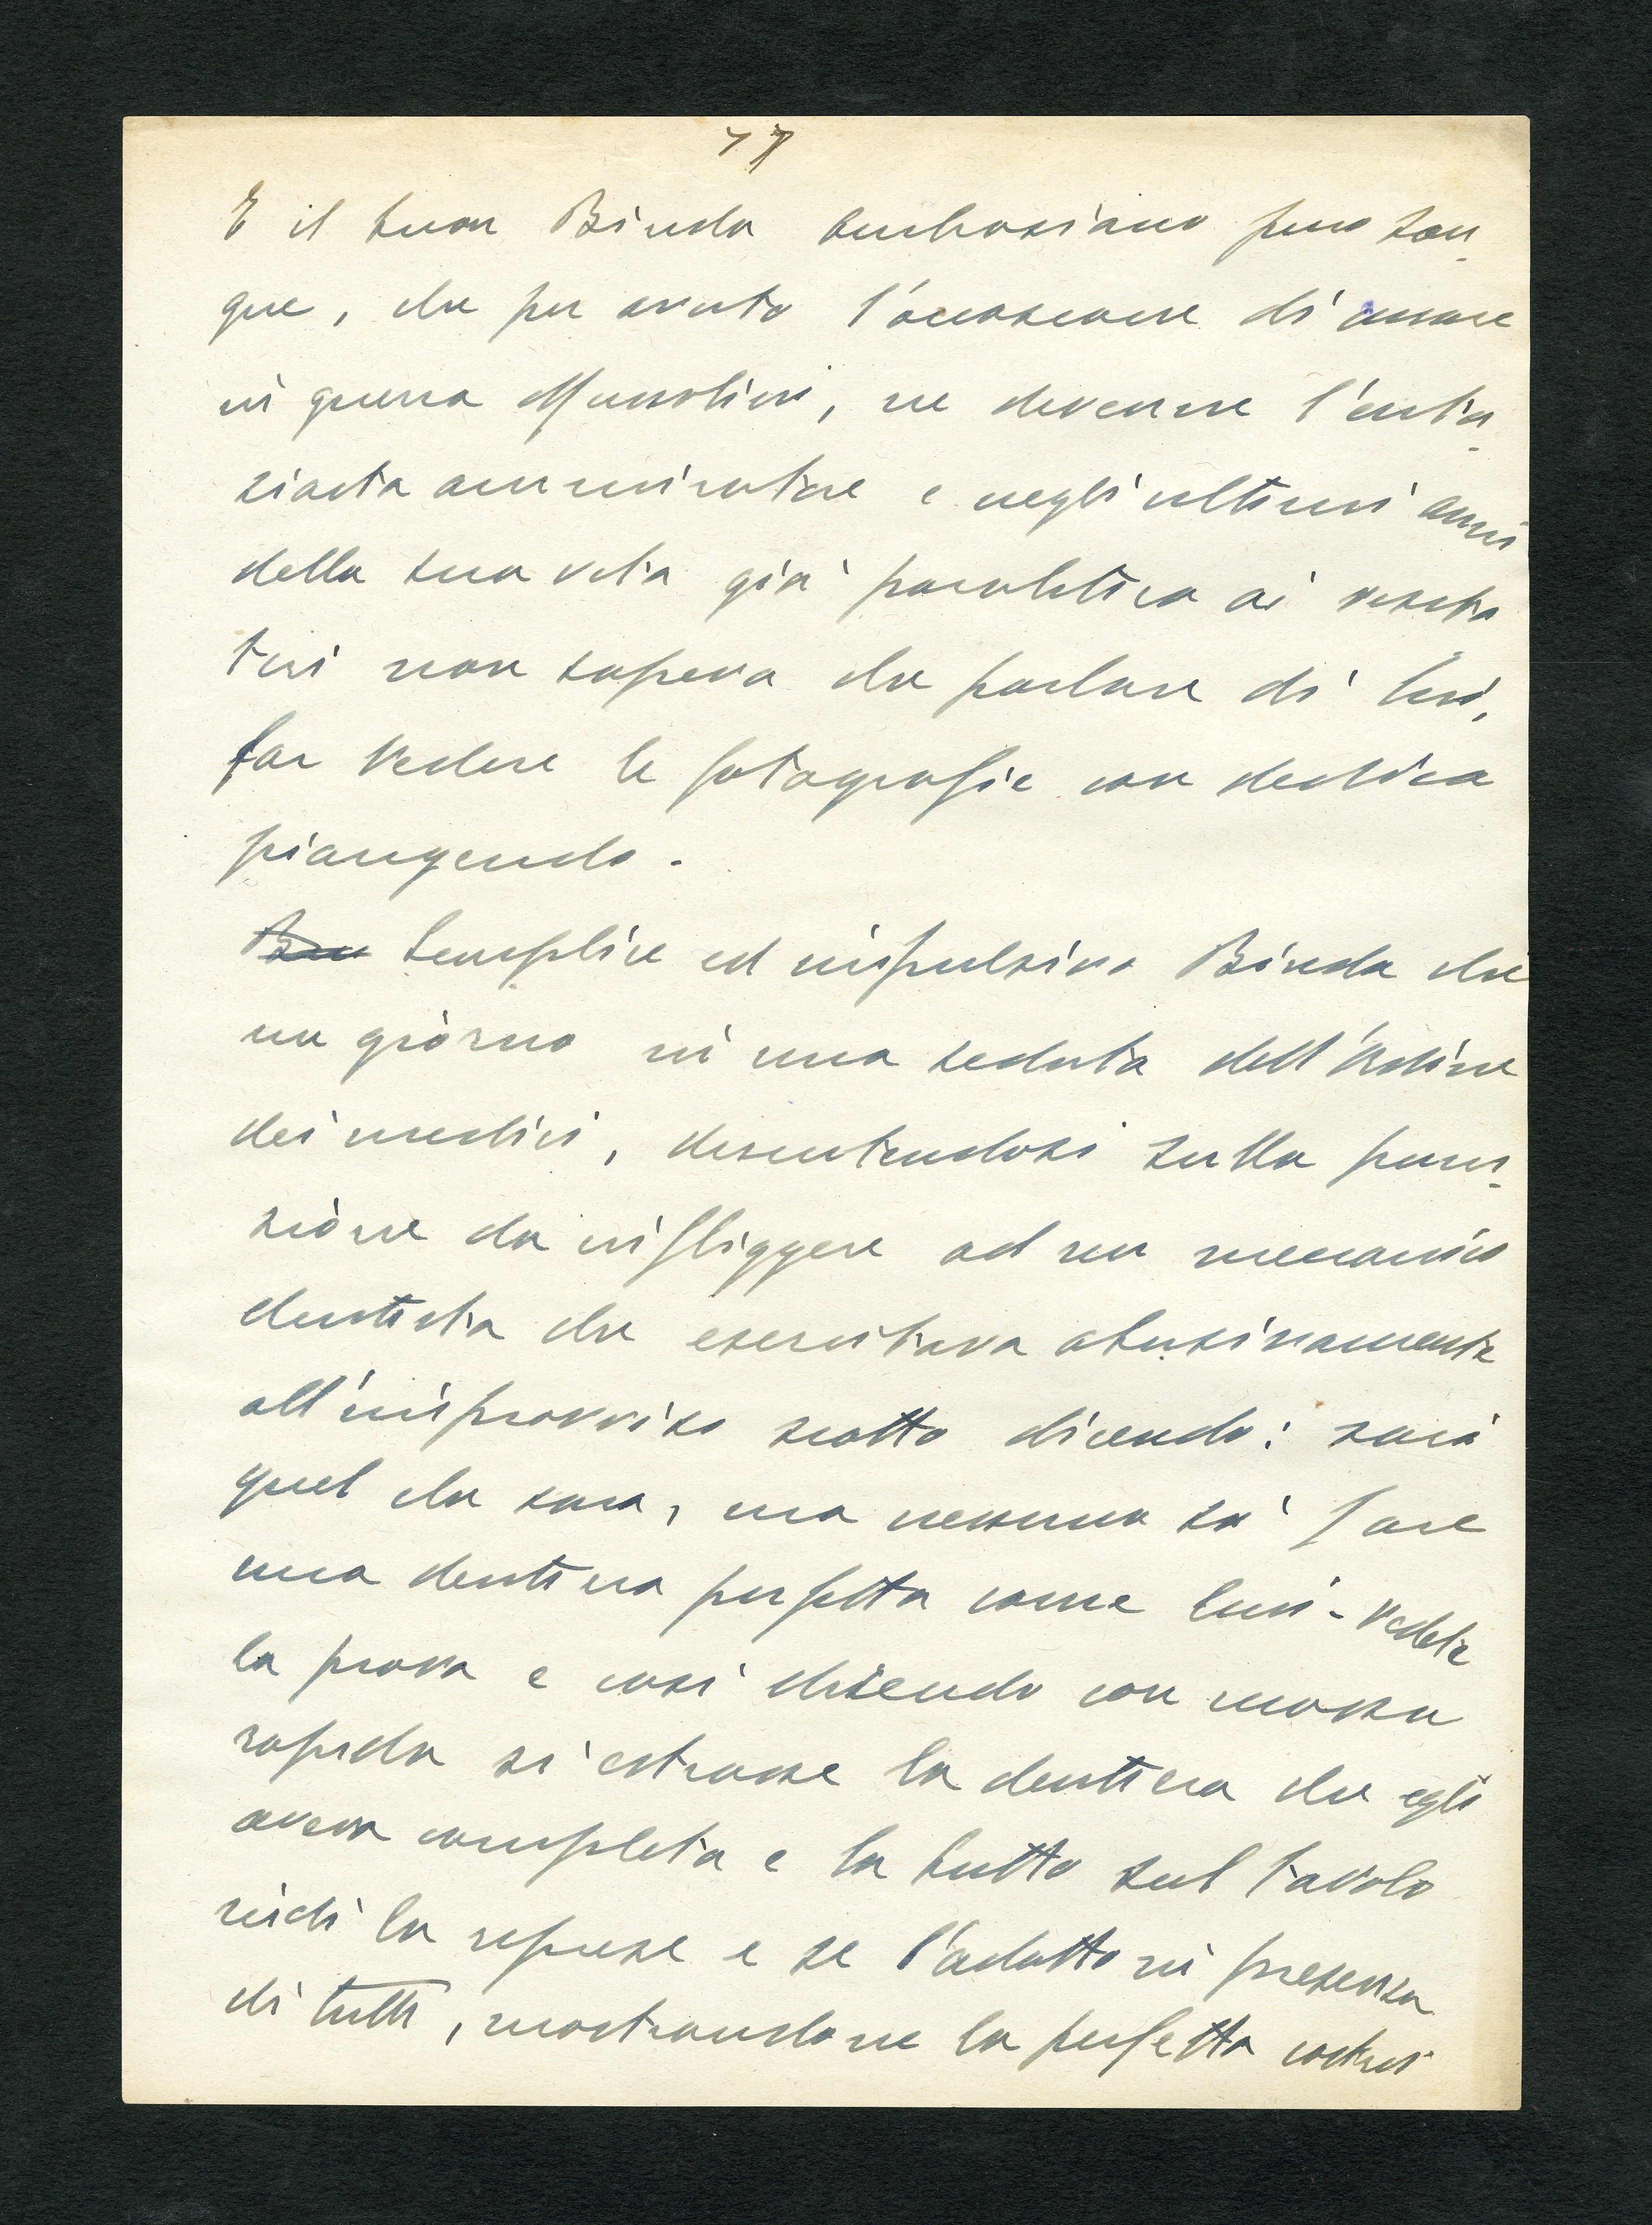 77
E il buon Binda ambrosiano puro san-
gue, che per avuto l'occasione di curare
in guerra Mussolini, ne divenne l'entu-
siasta ammiratore e negli ultimi anni
della sua vita già paralitico ai visita
tori non sapeva che parlare di lui,
far vedere le fotografie con dedica
piangendo.
Semplice ed impulsivo Binda che
un giorno in una seduta dell'Ordine
dei medici, discutendosi sulla puni-
zione da infliggere ad un meccanico
dentista che esercitava abusivamente
all'improvviso scatto dicendo: sarà
quel che sara, ma nessuno sa' fare
una dentiera perfetta come lui - vedete
la prova e cosi dicendo con mossa
rapida si estrasse la dentiera che egli
aveva completa e la butto sul tavolo
indi la represe e se l'adatto in presenza
di tutti, mostrandone la perfetta costru-